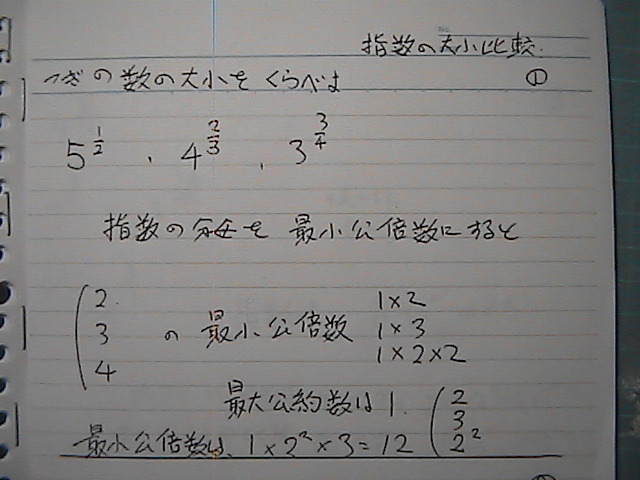 指数の大小比較.
つぎの数の大小をくらべよ ①
5^{1/2} , 4^{2/3} , 3^{3/4}
指数の分母を最小公倍数にすると
2. 1×2
3 の最小公倍数 1×3
4 1×2×2
最大公約数は1. ( 2
3
最小公倍数は、1×2²×3=12 2²